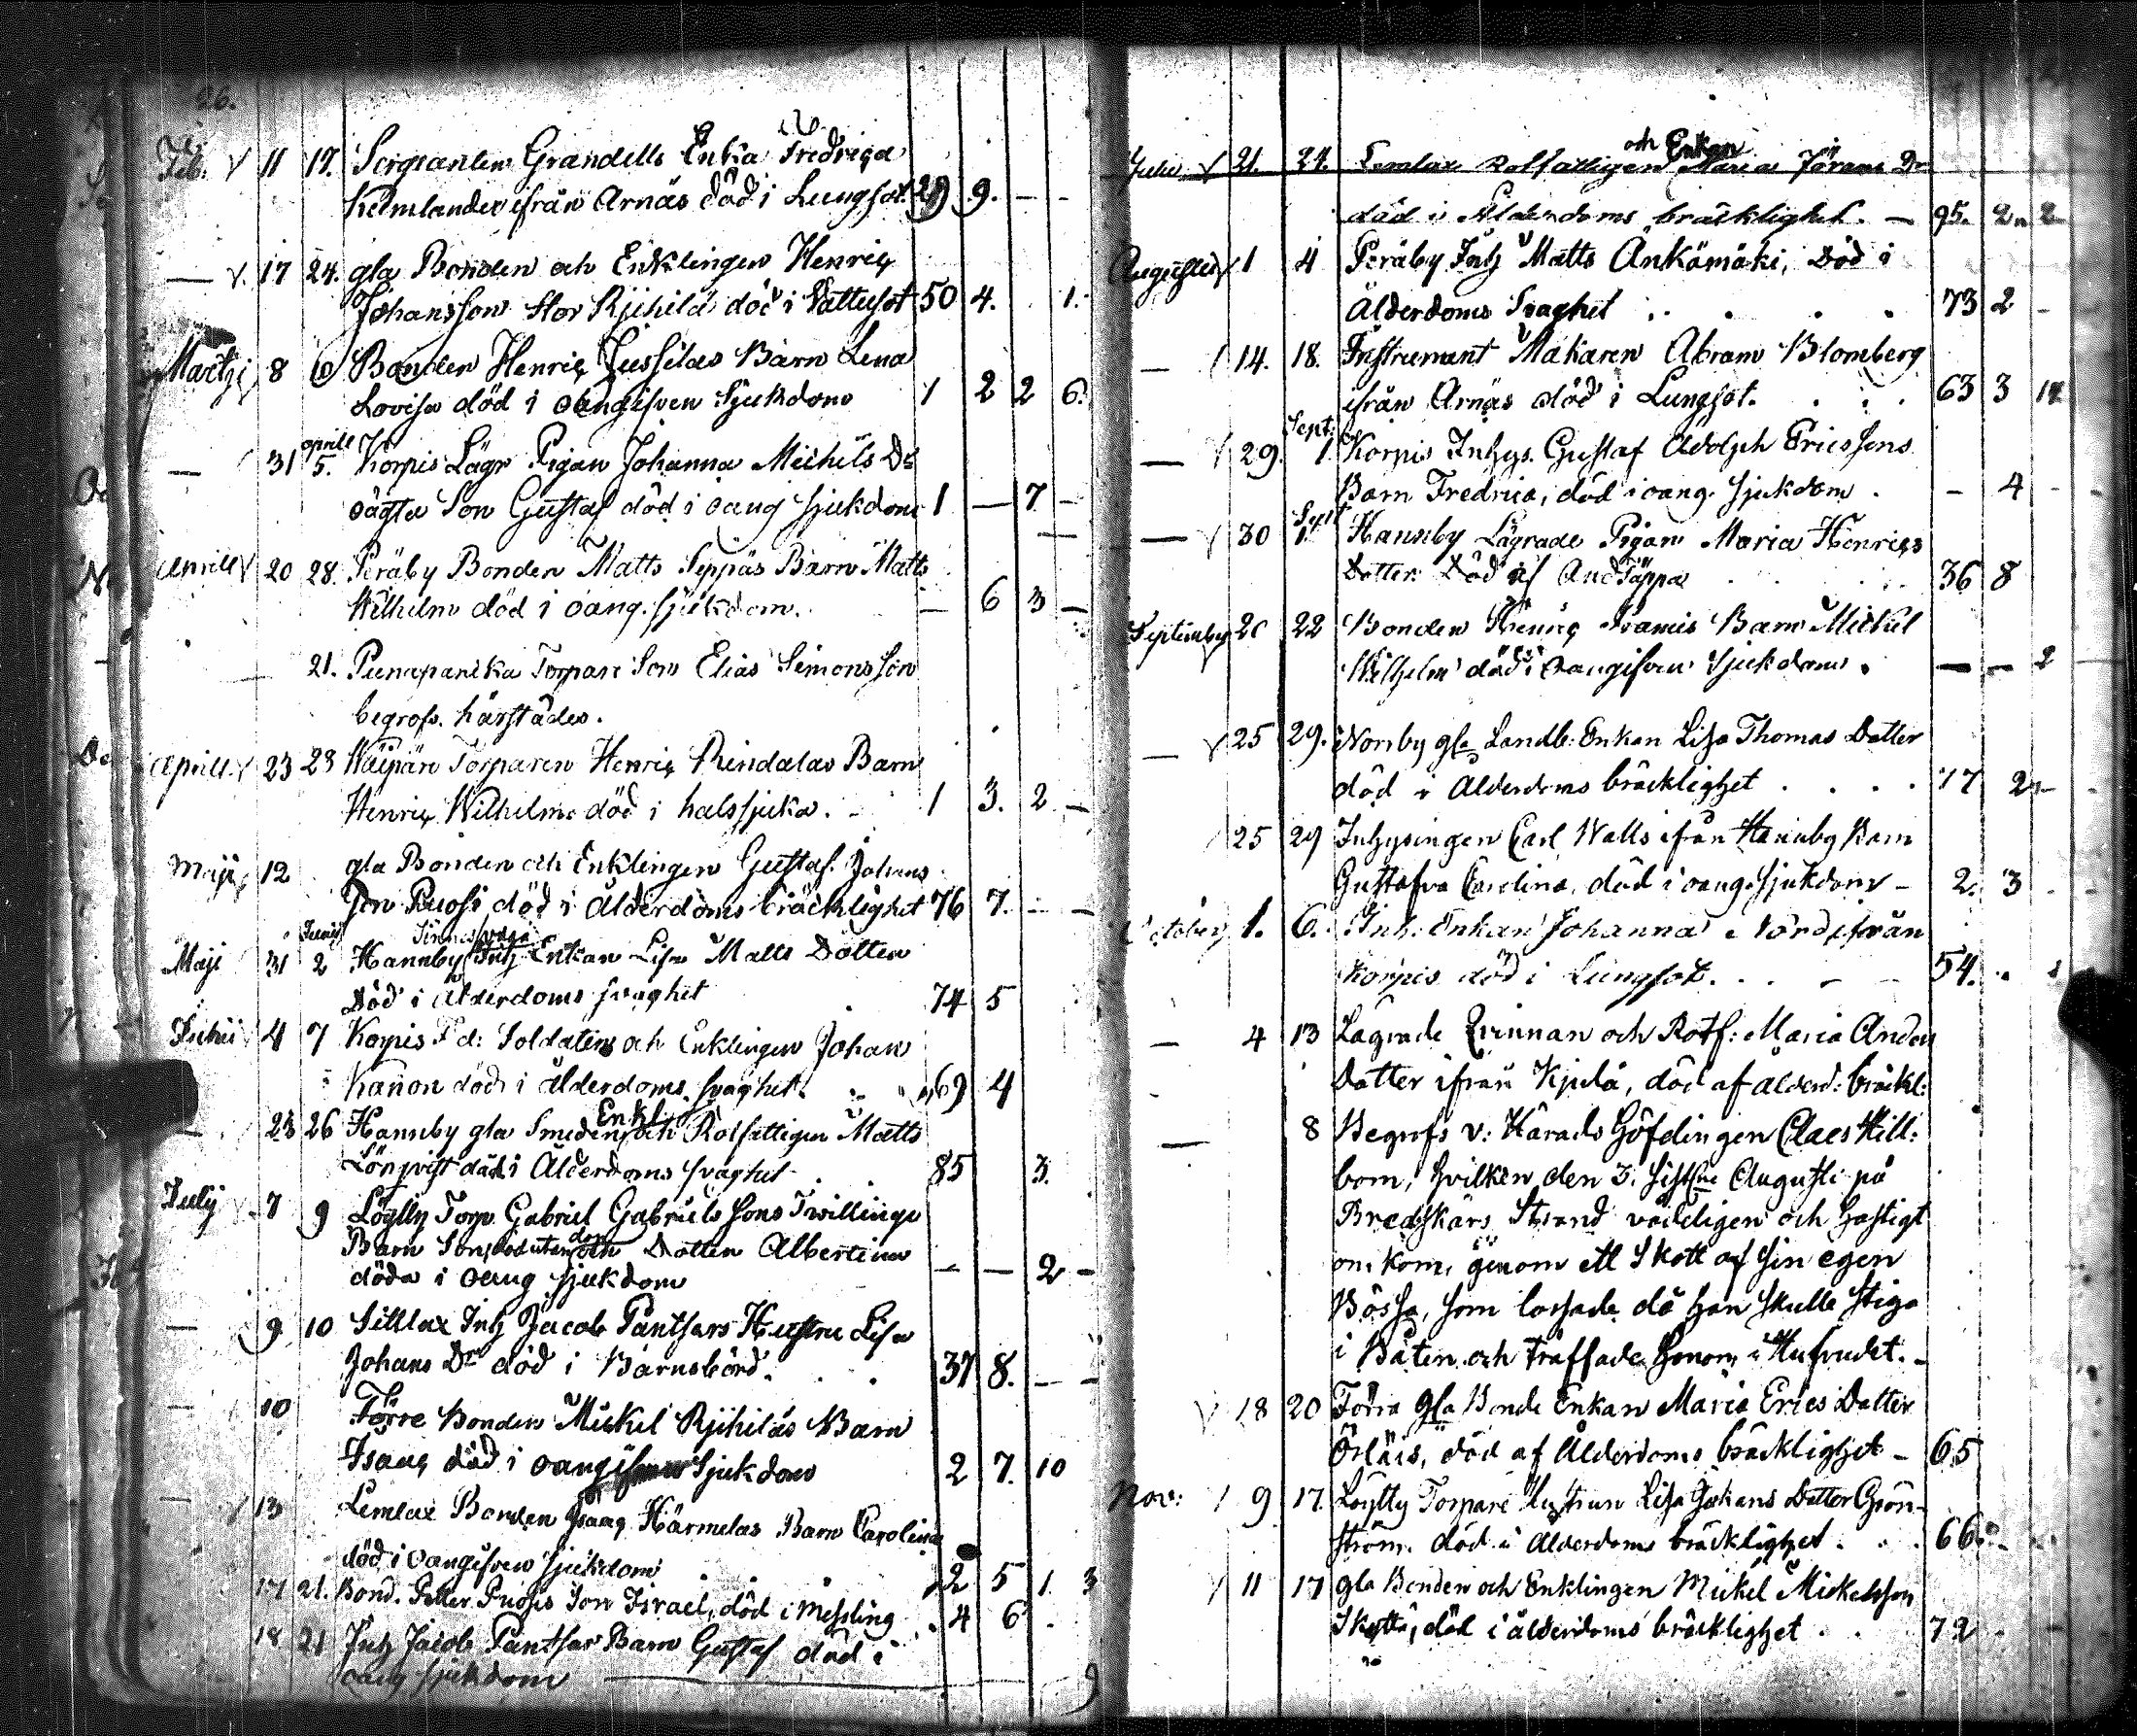 26.
Feb. 11 17. Sergeanten Grandells Enka Fredrica
Kumlander ifrån Arnäs död i Lungsot. 29 9. — -
— 17 24. gla Bonden och Enklingen Henric
Johansson Stor Rjihilä död i Vattusot 50 4. . 1.
Martzi 8 10 Bonden Henric Jussilas Barn Lena
Lovisa död i oangifven Sjukdom 1 2 2 6.
aprill
— 31 5. Korpis Lägr Pigan Johanna Michils Dr
oägta Son Gustaf död i oang sjukdom 1 — 7 -
Aprill 20 28. Peräby Bonden Matts Seppäs Barn Matts
Wilhelm död i oang. sjukdom. — 6 3 —
21. Punapaneka Torpare Son Elias Simonsson
begrofs. härstädes.
Aprill. 23 28 Torparen Henric Rindalas Barn
Henric Wilhelm död i halssjuka. 1 3. 2 —
Maji 12 gla Bonden och Enklingen Gustaf Johans
Son Puosi död i Ålderdoms bräcklighet 76 7. — —
Junij Sinnessvaga
Maji 31 2 Hannby Inh Enkan Lisa Matts Dotter
död i ålderdoms svaghet 74 5
Junii 4 7 Korpis F d: Soldaten och Enklingen Johan
Kanon död i ålderdoms svaghet. 69 4
Enkl
— 23 26 Hannby gla Smeden och Rotfattigen Matts
Lönqvist död i Ålderdoms svaghet 85 3.
July 7 9 Löytty Torp Gabriel Gabriels Sons Twillinge
Barn Son, dödutan don och Dotter Albertina
döda i oang sjukdom — — 2 —
— 9 10 Sillax Inh Jacob Pantsars Hustru Lisa
Johans Dr död i Barnsbörd. 37 8. — —
— 10 Förre Bonden Mickel Rjihiläs Barn
Isaac död i oangifven Sjukdom 2 7. 10
— 13 Lemlax Bonden Isaac Härmelas Barn Carolina
död i oangifven sjukdom 2 5 1. 3
17 21. Bond. Petter Puosis Son Israel, död i Messling 4 6 .
18 21 Inh Jacob Pantsar Barn Gustaf död i
oang sjukdom
och Enkan
Julii 21. 24. Lemlax Rotfattigen Maria Jörans Dr
död i Ålderdoms bräcklighet. — 95. 2 2
Augusti 1 4 Peräby Inh Matts Ånkämäki, död i
Ålderdoms Svaghet 73 2 -
— 14. 18. Instrument Makaren Abram Blomberg
ifrån Arnäs död i Lungsot. 63 3 14
Sept:
— 29. 1. Korpis Inhys. Gustaf Adolph Ericssons
Barn Fredrica, död i oang. sjukdom. — 4 - -
Sept
— 30 1. Hannby Lägrade Pigan Maria Henrics
Dotter. Död af Andtäppa 36 8
Septemb 20 22 Bonden Henric Barn Mickel
Wilhelm död i oangifven Sjukdom. — — 2
— 25 29. Norrby gla Landb: Enkan Lisa Thomas Dotter
död i Ålderdoms bräcklighet 77 2 -
25 29 Inhysingen Carl Walls ifrån Hannby Barn
Gustafva Carolina, död i oang. sjukdom — 2. 3 .
October 1. 6. Inh. Enkan Johanna Nord ifrån
Korpis död i Lungsot. . . — — 54.
— 4 13 Lägrade Qvinnan och Rotf: Maria Anders
Dotter ifrån Kjulå, död af ålderd: bräckl:
— 8 Begrofs v: Härads Höfdingen Claes Hill:
bom, hvilken den 3. sistlne Augusti på
Bredskärs Strand vådeligen och hastigt
omkom, genom ett Skott af sin egen
Bössa, som lossade då han skulle stiga
i Båten, och träffade honom i Hufvudet. -
18 20 Förra gla Bonde Enkan Maria Erics Dotter
död af Ålderdoms bräcklighet - 65
Nov: 9 17. Löytty Torpare Hustrun Lisa Johans Dotter Grön-
ström. död i Ålderdoms bräcklighet. 66.
11 17 gla Bonden och Enklingen Mickel Mickelsson
Skyttä, död i ålderdoms bräcklighet 72